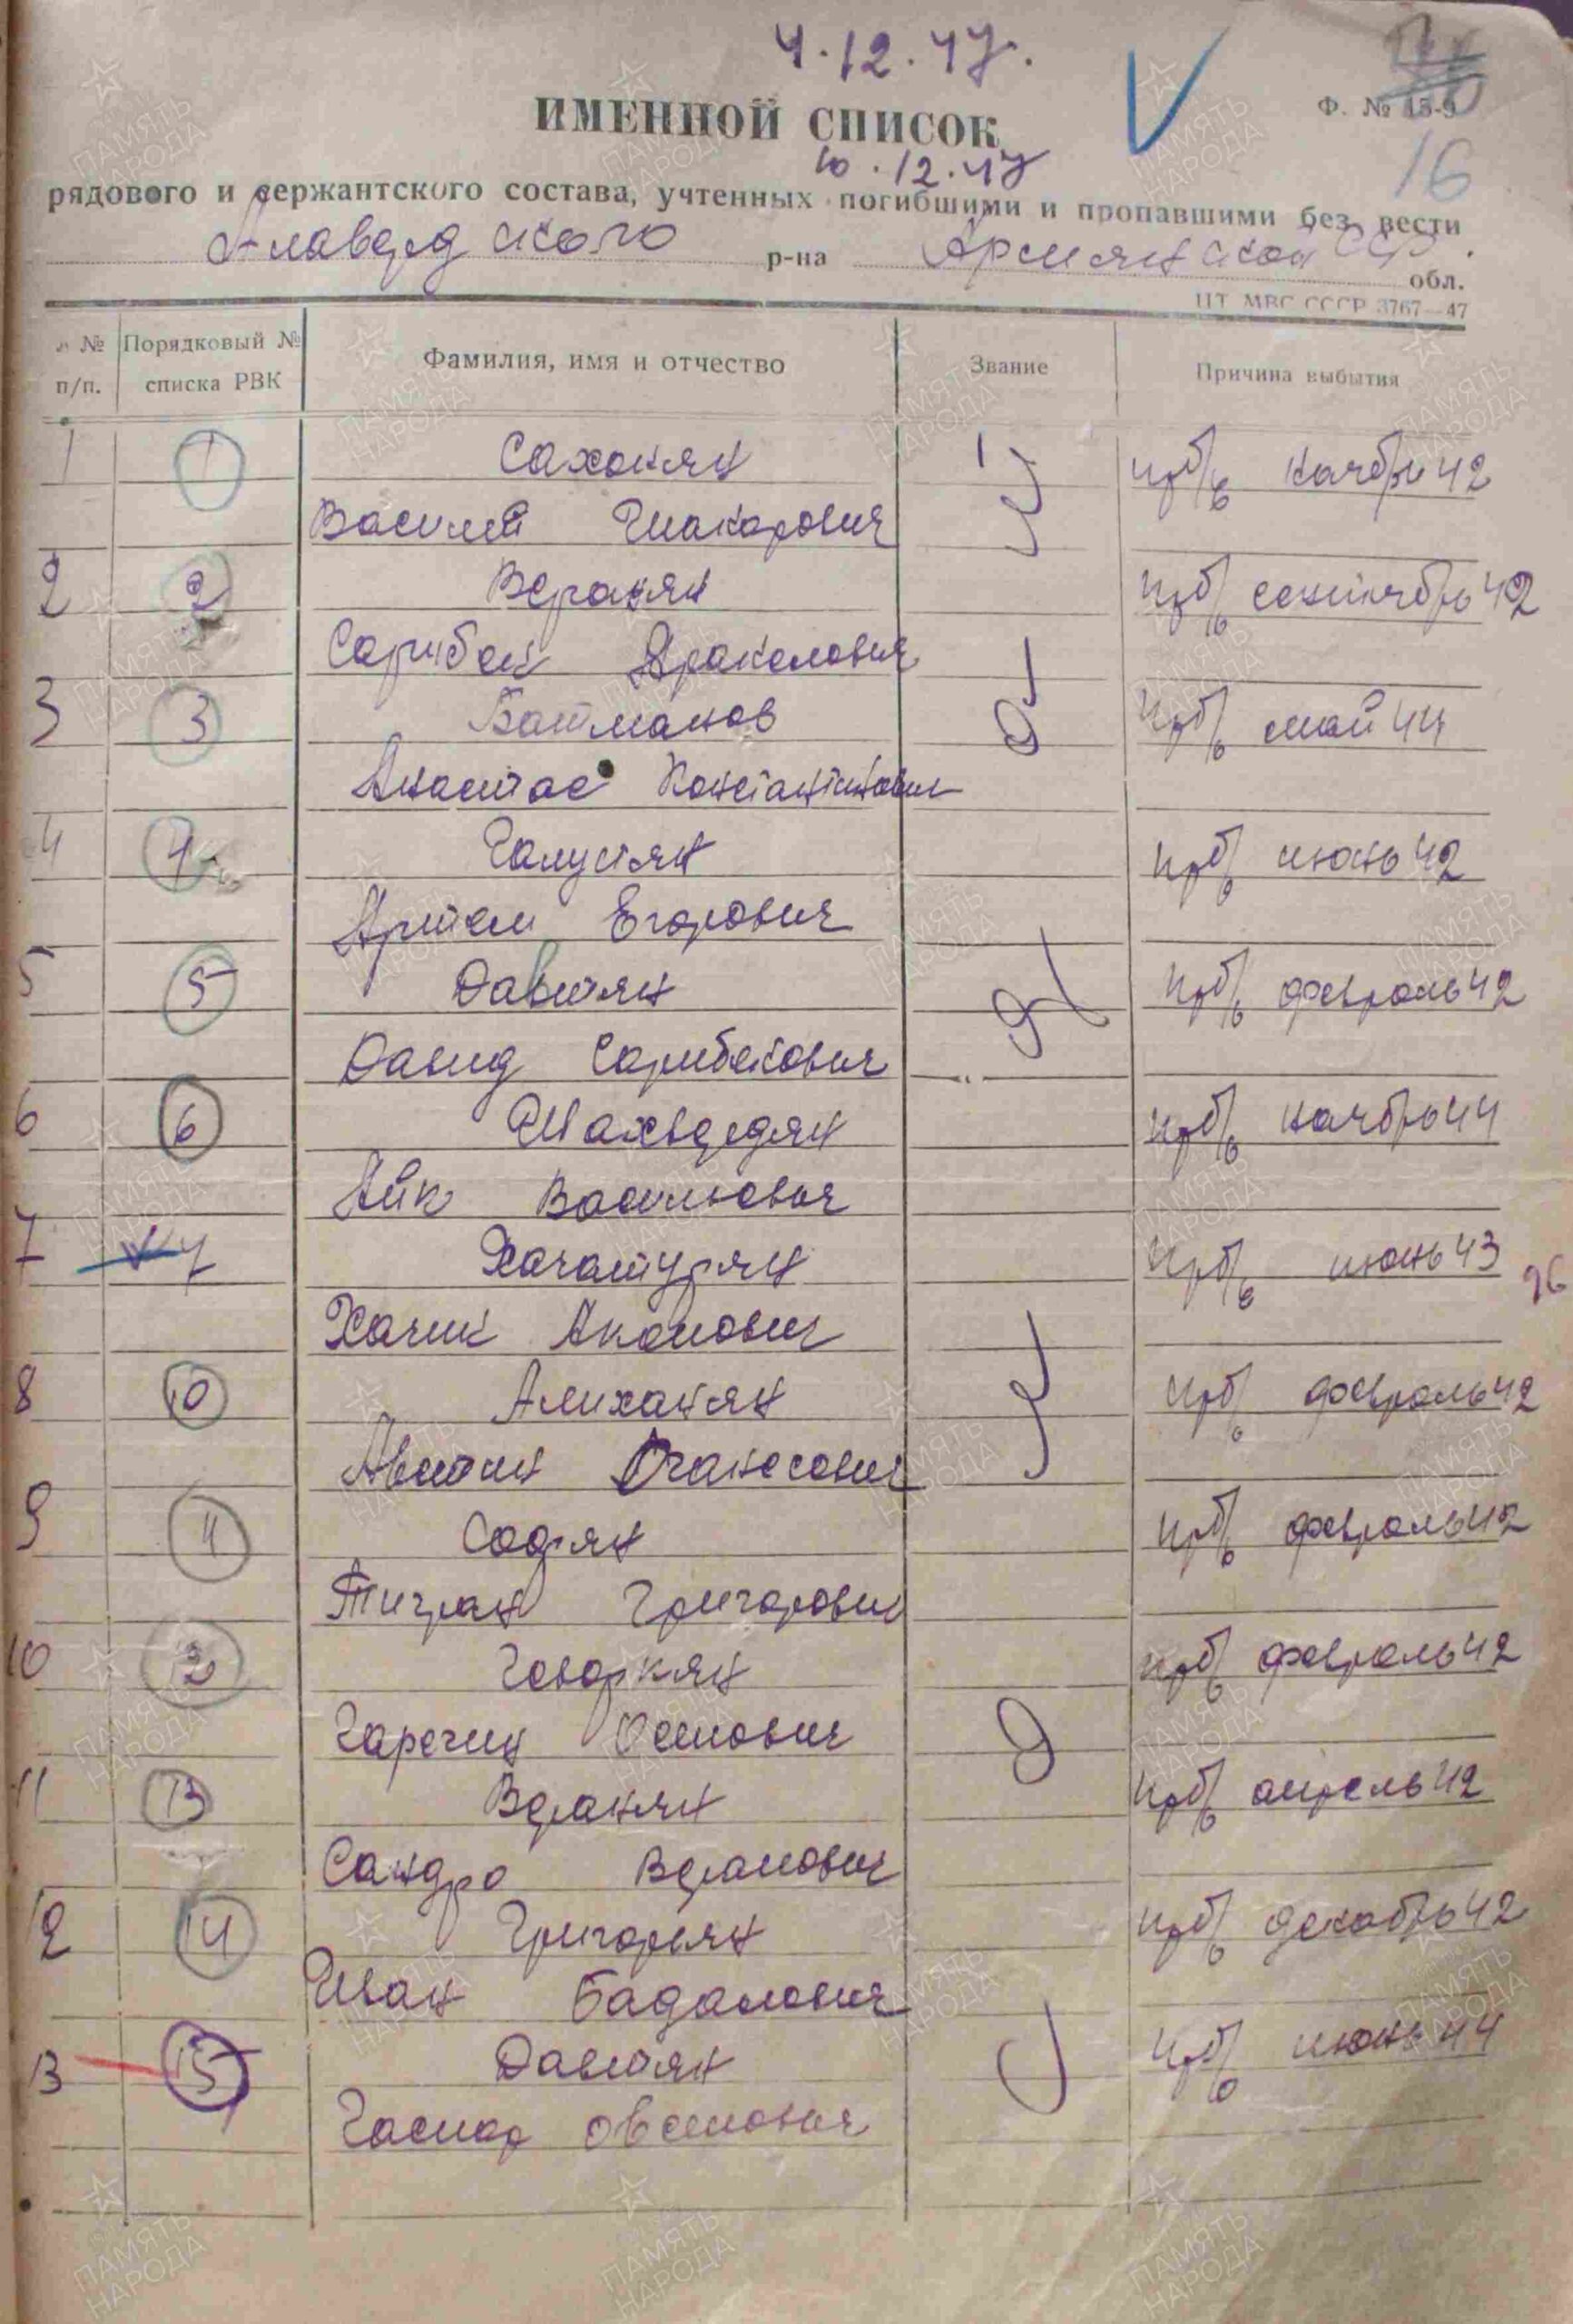 4.12.47.
ИМЕННОЙ СПИСОК
Ф. № 15-9
16
10.12.47
рядового и сержантского состава, учтенных погибшими и пропавшими без вести
Алавердского р-на Армянской ССР. обл.
ЦТ МВС СССР 3767—47
№ п/п. Порядковый № списка РВК Фамилия, имя и отчество Звание Причина выбытия
1 1 Сахокян прб/в ноябрь 42
Василий Макарович
2 2 Веранян прб/в сентябрь 42
Сарибек Аракелович
3 3 Батманов прб/в май 44
Анастас Константинович
4 4 Галустян прб/в июнь 42
Артем Егорович
5 5 Давитян прб/в февраль 42
Давид Сарибекович
6 6 Шахвердян прб/в ноябрь 44
Айк Васильевич
7 7 Хачатурян прб/в июнь 43
Хачик Акопович
8 10 Алиханян прб/в февраль 42
Аветик Оганесович
9 11 прб/в февраль 42
Тигран Григорович
10 12 Геворкян прб/в февраль 42
Гарегин Осипович
11 13 Вранян прб/в апрель 42
Сандро Врамович
12 14 Григорян прб/в декабрь 42
Иван Бадалович
13 15 Давитян прб/в июнь 44
Гаспар Овсепович
ПАМЯТЬ НАРОДА